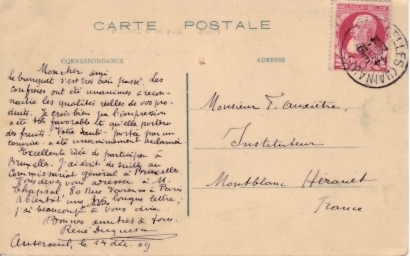 CARTE POSTALE
CORRESPONDANCE
ADRESSE
BELGIQUE BELGIË
ELLES (HAINAUT)
Mon cher ami
le banquet s'est très bien passé. Les
confrères ont été unanimes à recon-
naître les qualités réelles de vos pro-
duits. Je crois bien que l'impression
a été très favorable et qu'elle portera
des fruits. Votre santé portée par un
convive a été unanimement acclamée
Excellente idée de participer à
Bruxelles. J'ai écrit de suite au
commissariat général à Bruxelles
Vous devez vous adresser à M.
Chapsal, 80 Rue Varenne à Paris
à bientôt une très longue lettre,
j'ai beaucoup à vous dire.
Bonnes amitiés à tous.
René
le 14 déc. 09
Monsieur F.
Instituteur
Montblanc Hérault
France